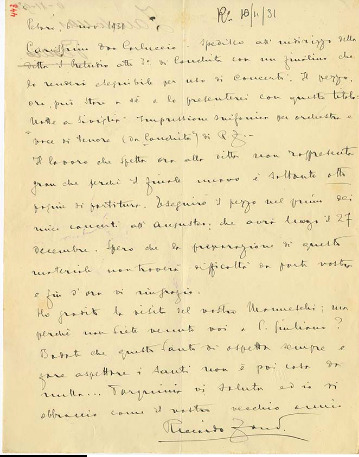 443
R. 10/11/31
1931
Carissimo Don Carluccio. Spedisco all'indirizzo della
ditta il Preludio atto 3º di Conchita con un finalino che
lo renderà eseguibile per uso di Concerti. Il pezzo,
ora, può stare a sé e lo presenterei con questo titolo:
Notte a Siviglia. Impressioni sinfoniche per orchestra e
voce di Tenore (da Conchita) di R. Z. -
Il lavoro che spetta ora alla ditta non rappresenta
gran che perché il finale nuovo è soltanto otto
pagine di partitura. Eseguirò il pezzo nel primo dei
miei concerti all'Augusteo, che avrà luogo il 27
decembre. Spero che la preparazione di questo
materiale non troverà difficoltà da parte vostra
e fin d'ora vi ringrazio.
Ho gradito la visita del vostro ; ma
perché non siete venuto voi a S. Giuliano?
Badate che questo Santo vi aspetta sempre e
fare aspettare i santi non è poi cosa da
nulla... Tarquinia vi saluta ed io vi
abbraccio come il vostro vecchio amico
Riccardo Zand.